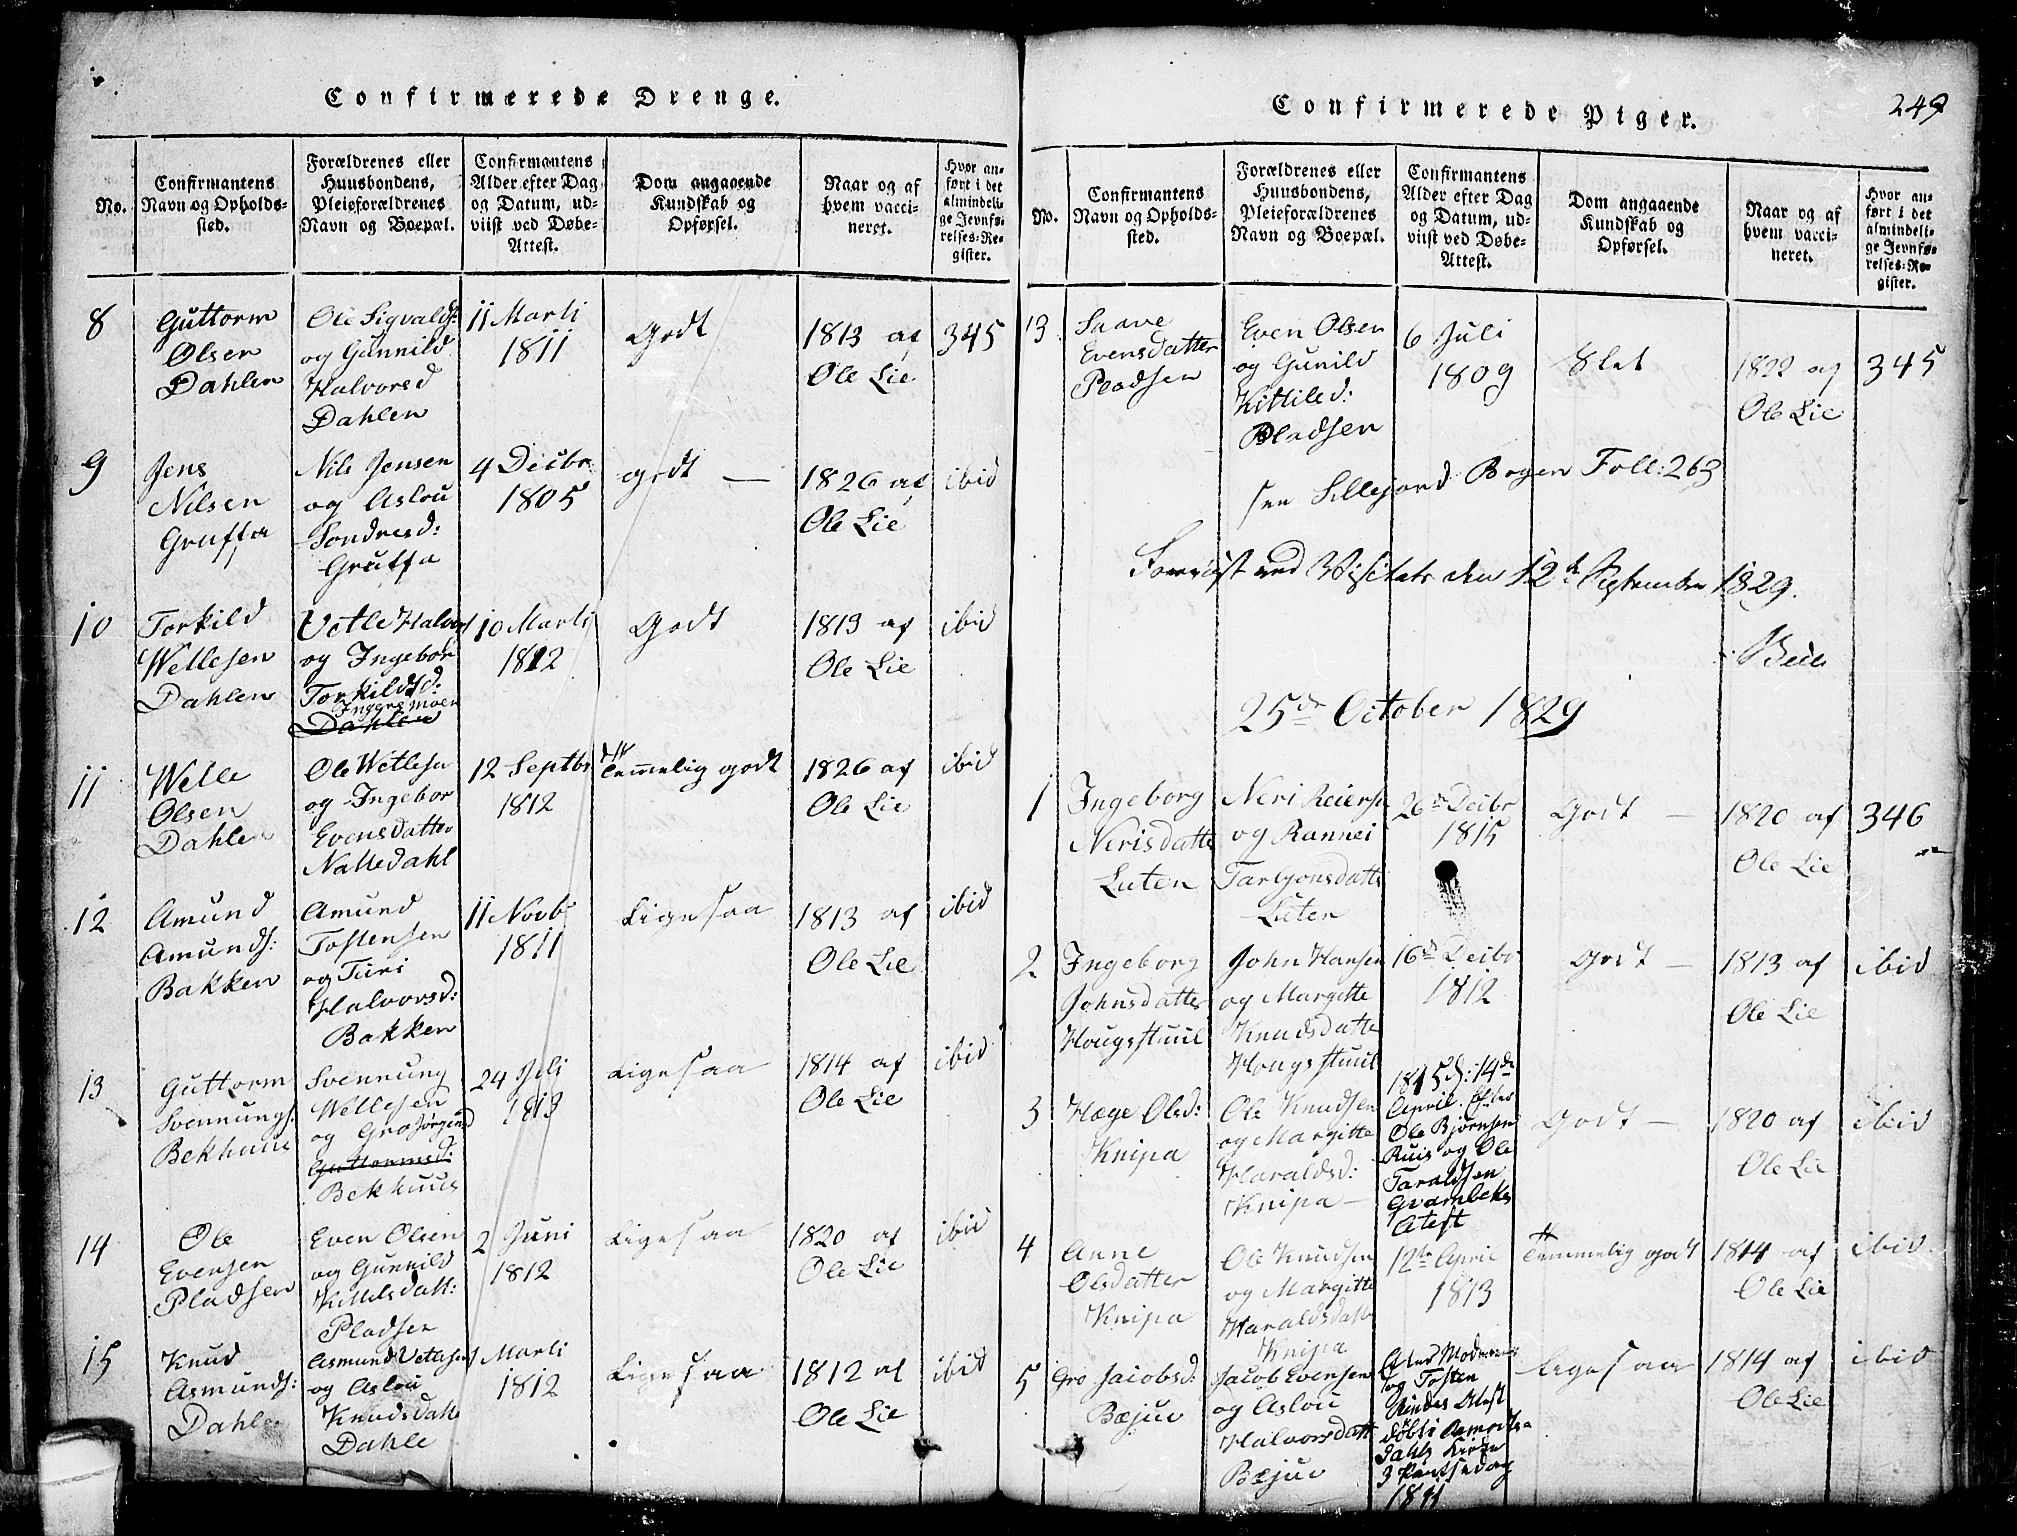 Confirmerede Drenge.
No.
Confirmantens
Navn og Opholds-
sted.
Forældrenes eller
Huusbondens,
Pleieforældrenes
Navn og Boepæl.
Confirmantens
Alder efter Dag
og Datum, ud-
viist ved Døbe-
Attest.
Dom angaaende
Kundskab og
Opførsel.
Naar og af
hvem vacci-
neret.
Hvor an-
ført i det
almindeli-
ge Jevnfø-
relses-Re-
gister.
8
Guttorm
Olsen
Dahlen
Ole Sigvalds:
og Gunnild
Halvorsd
Dahlen
11 Marti
1811
Godt
1813 af
Ole Lie
345
9
Jens
Nilsen
Gruffa
Nils Jensen
og Aslou
Sondresd:
Gruffa
4 Decbr
1805
godt —
1826 af
Ole Lie
ibid
10
Torkild
Wellesen
Dahlen
Vetle Halvors
og Ingebor
Torkildsd:
Ingersmoen
Dahlen
10 Marti
1812
Godt
1813 af
Ole Lie
ibid
11
Welle
Olsen
Dahlen
Ole Wetlesen
og Ingebor
Evensdatter
Nattedahl
12 Septbr
1812
Temmelig godt
1826 af
Ole Lie
ibid
12
Amund
Amunds:
Bakken
Amund
Tostensen
og Turi
Halvorsd:
Bakken
11 Novb
1811
Ligesaa
1813 af
Ole Lie
ibid
13
Guttorm
Svennungs.
Bekhuus
Svennung
Wellesen
og Gro Jørgensd
Guttormsd:
Bekhuus
24 Juli
1813
Ligesaa
1814 af
Ole Lie
ibid
14
Ole
Evensen
Pladsen
Even Olsen
og Gunnild
Kittilsdatt:
Pladsen
2 Juni
1812
Ligesaa
1820 af
Ole Lie
ibid
15
Knud
Asmunds:
Dahle
Asmund Vetlesen
og Aslou
Knudsdatt
Dahle
1 Marti
1812
Ligesaa
1812 af
Ole Lie
ibid
Confirmerede Piger.
249
No.
Confirmantens
Navn og Opholds-
sted.
Forældrenes eller
Huusbondens,
Pleieforældrenes
Navn og Boepæl.
Confirmantens
Alder efter Dag
og Datum, ud-
viist ved Døbe-
Attest.
Dom angaaende
Kundskab og
Opførsel.
Naar og af
hvem vacci-
neret.
Hvor an-
ført i det
almindeli-
ge Jevnfø-
relses-Re-
gister.
13
Saave
Evensdatter
Pladsen
Even Olsen
og Gunild
Kittiled:
Pladsen
6 Juli
1809
Slet
1822 af
Ole Lie
345
see Sillejord Bogen Foll: 263
Foreviist ved Visitats den 12te September 1829.
25de October 1829
1
Ingeborg
Nerisdatte
Luten
Neri Reiersen
og Rannei
Tarlgonsdatte
Luten
26de Decbr
1815
Godt —
1820 af
Ole Lie
346
2
Ingeborg
Johnsdatter
Hougsstuul
John Hansen
og Margitte
Knudsdatte
Hougsstuul
16de Decbr
1812
Godt —
1813 af
Ole Lie
ibid
3
Hæge Olsd:
Knipa
Ole Knudsen
og Margitte
Haraldsd:
Knipa —
1815 d: 14de
April. Efter
Ole Bjørnsen
Ruis og Ole
Taraldsen
Grambeks
Atest
Godt —
1820 af
Ole Lie
ibid
4
Anne
Olsdatter
Knipa
Ole Knudsen
og Margitte
Haraldsdatte
Knipa
12te April
1813
Temmelig godt
1814 af
Ole Lie
ibid
5
Gro Jacobsd:
Bæjuu
Jacob Evensen
og Aslou
Halvorsdatt
Bæjuu
Efter Moderens
og Tosten
Rindes Atest
døbt i
Dahls Kirke
1811
Ligesaa
1814 af
Ole Lie
ibid